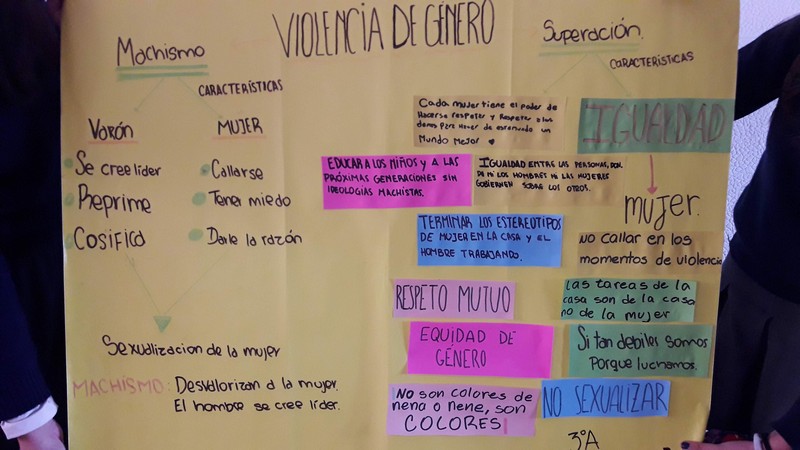 VIOLENCIA DE GÉNERO
Machismo
CARACTERÍSTICAS
VARÓN
Se cree líder
Reprime
Cosifica
MUJER
Callarse
Tener miedo
Darle la razón
Sexualizacion de la mujer
MACHISMO: Desvalorizan a la mujer.
El hombre se cree líder.
Superación.
CARACTERÍSTICAS
Cada mujer tiene el poder de
Hacerse respetar y Respetar a los
demas Para Hacer de este mundo un
Mundo Mejor
IGUALDAD
EDUCAR A LOS NIÑOS Y A LAS
PRÓXIMAS GENERACIONES SIN
IDEOLOGÍAS MACHISTAS.
IGUALDAD ENTRE LAS PERSONAS, DON
DE NI LOS HOMBRES NI LAS MUJERES
GOBIERNEN SOBRE LOS OTROS.
mujer.
TERMINAR LOS ESTEREOTIPOS
DE MUJER EN LA CASA Y EL
HOMBRE TRABAJANDO.
no callar en los
momentos de violencia
RESPETO MUTUO
Las tareas de la
casa son de la casa
no de la mujer
EQUIDAD DE
GÉNERO
Si tan debiles somos
Porque luchamos.
No son colores de
nena o nene, son
COLORES!
NO SEXUALIZAR
3°A